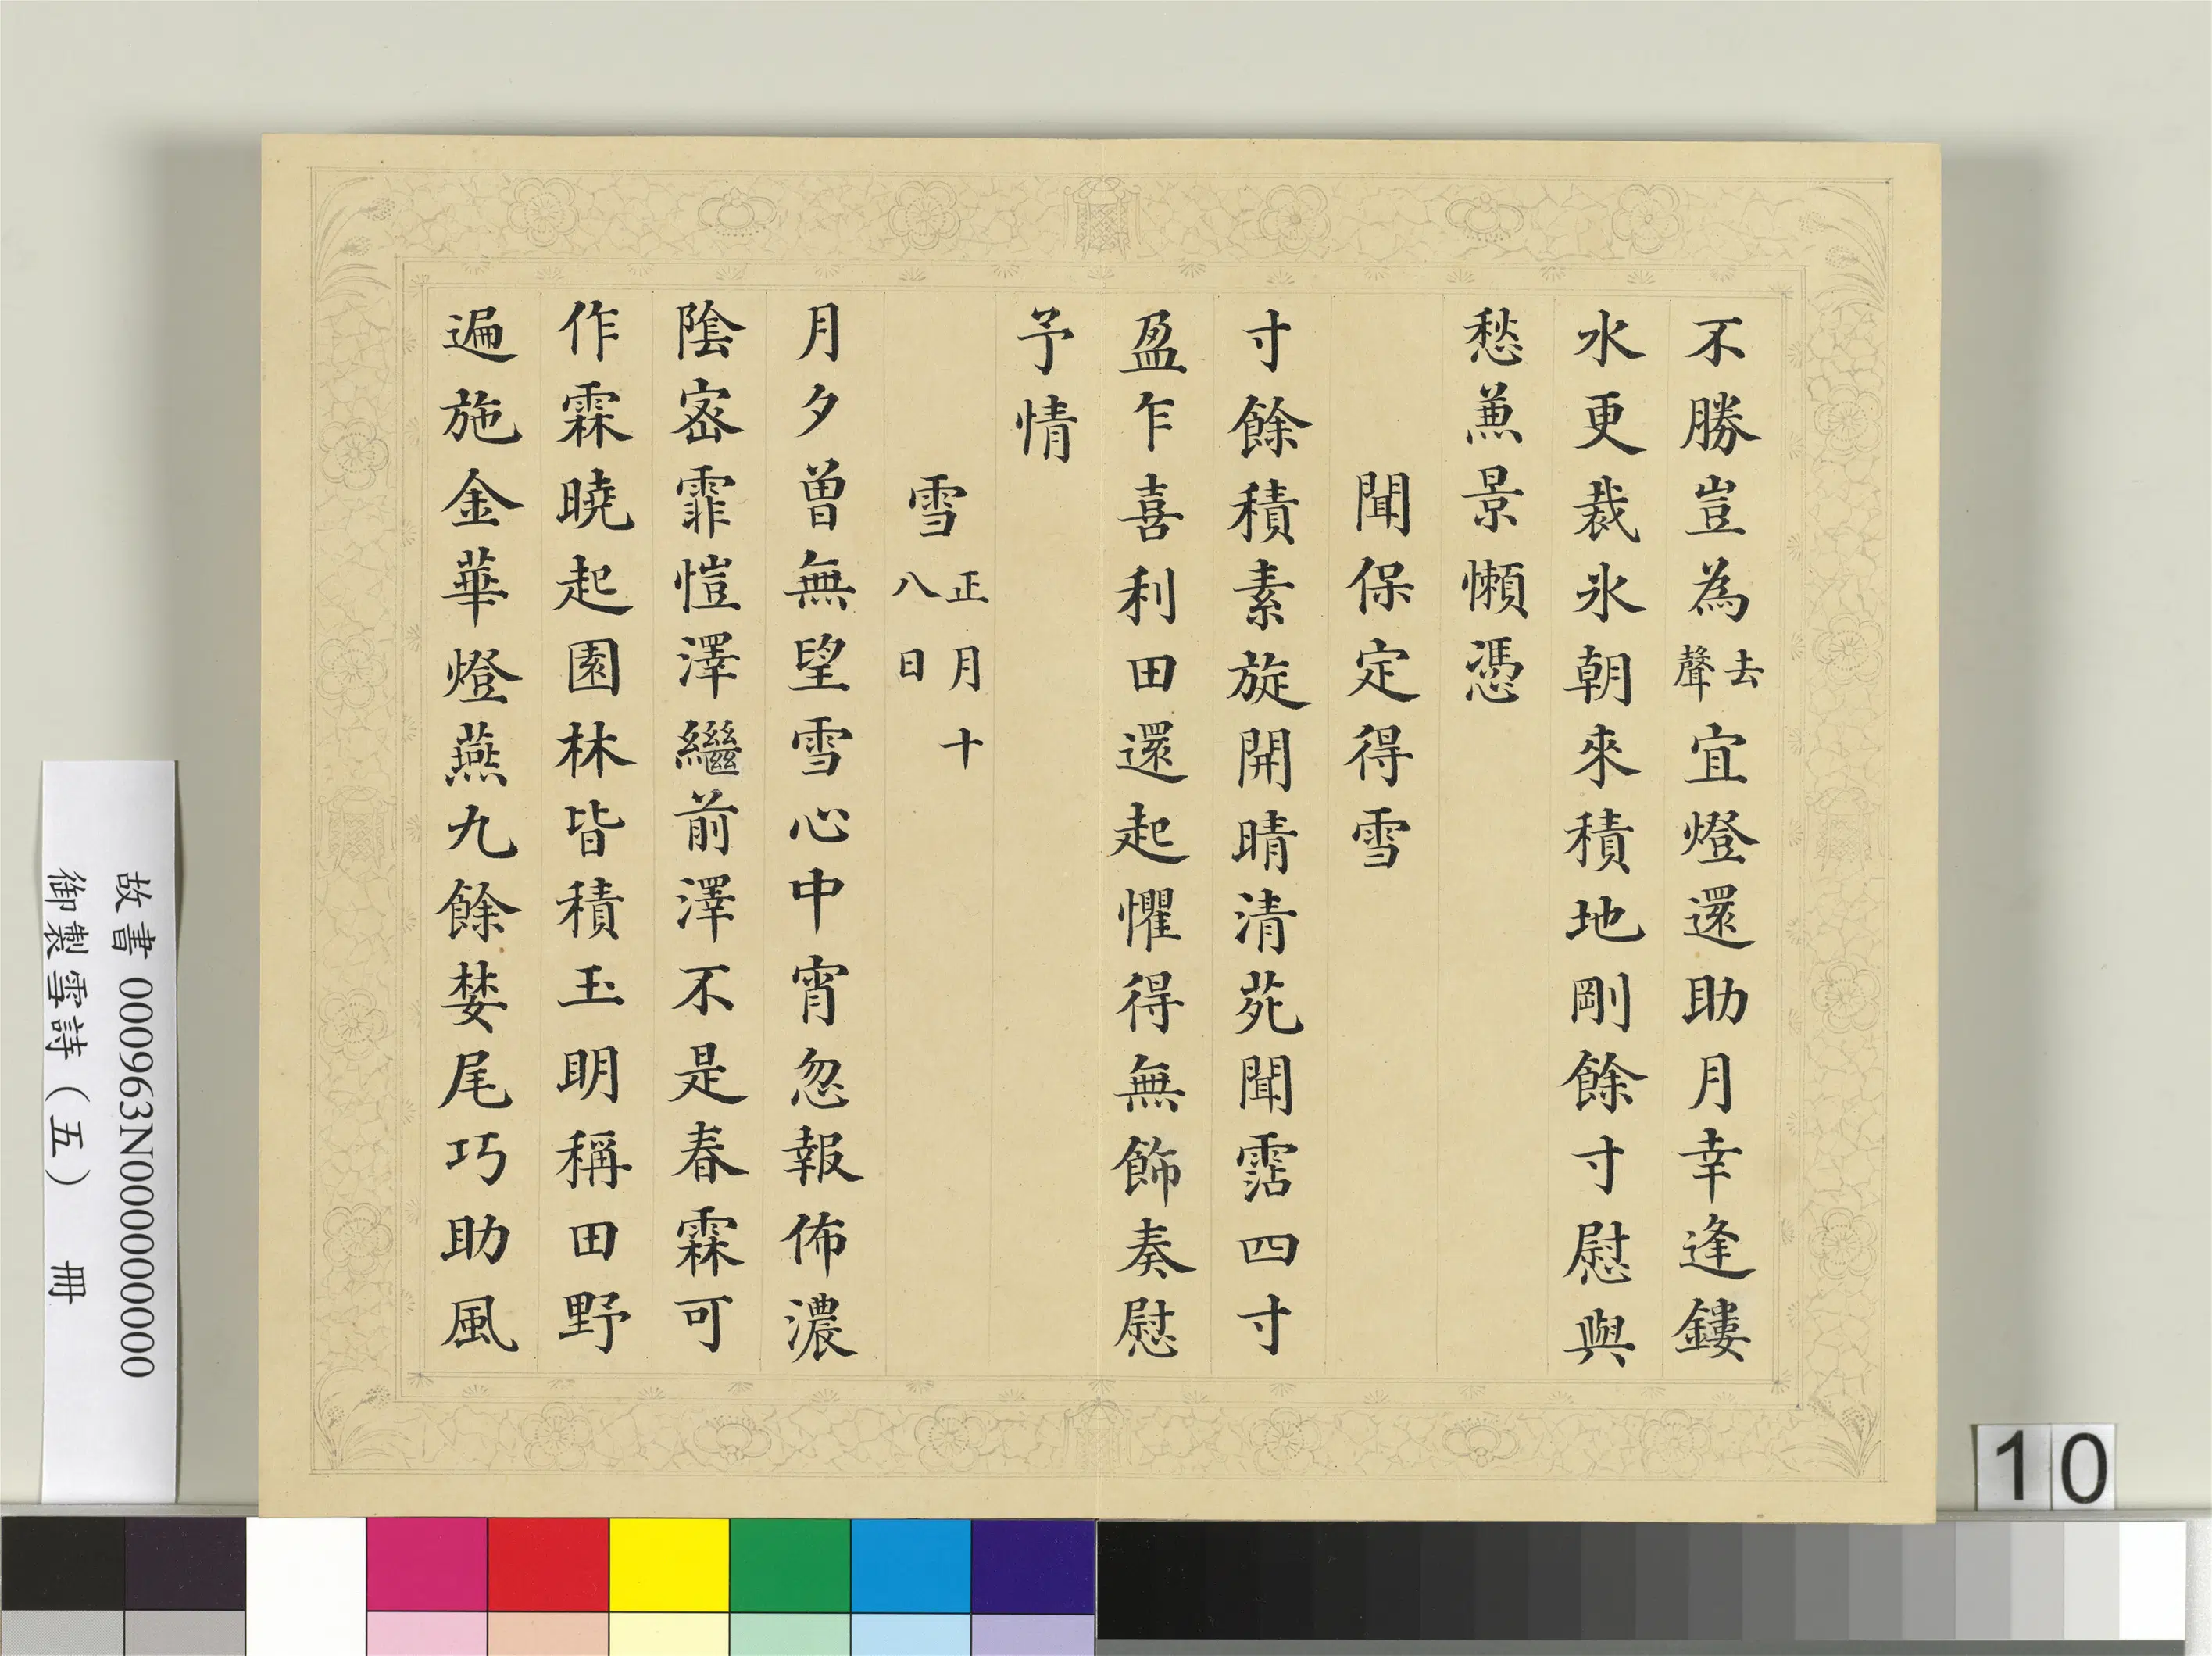 不勝豈為去聲宜燈還助月幸逢鏤
水更裁氷朝來積地剛餘寸慰與
愁兼景懶憑
聞保定得雪
寸餘積素旋開晴清苑聞霑四寸
盈乍喜利田還起懼得無飾奏慰
予情
雪正月十八日
月夕曾無望雪心中宵忽報佈濃
陰密霏愷澤繼前澤不是春霖可
作霖曉起園林皆積玉明稱田野
遍施金華燈燕九餘婪尾巧助風
故書 000963N000000000
御製雪詩（五） 冊
10